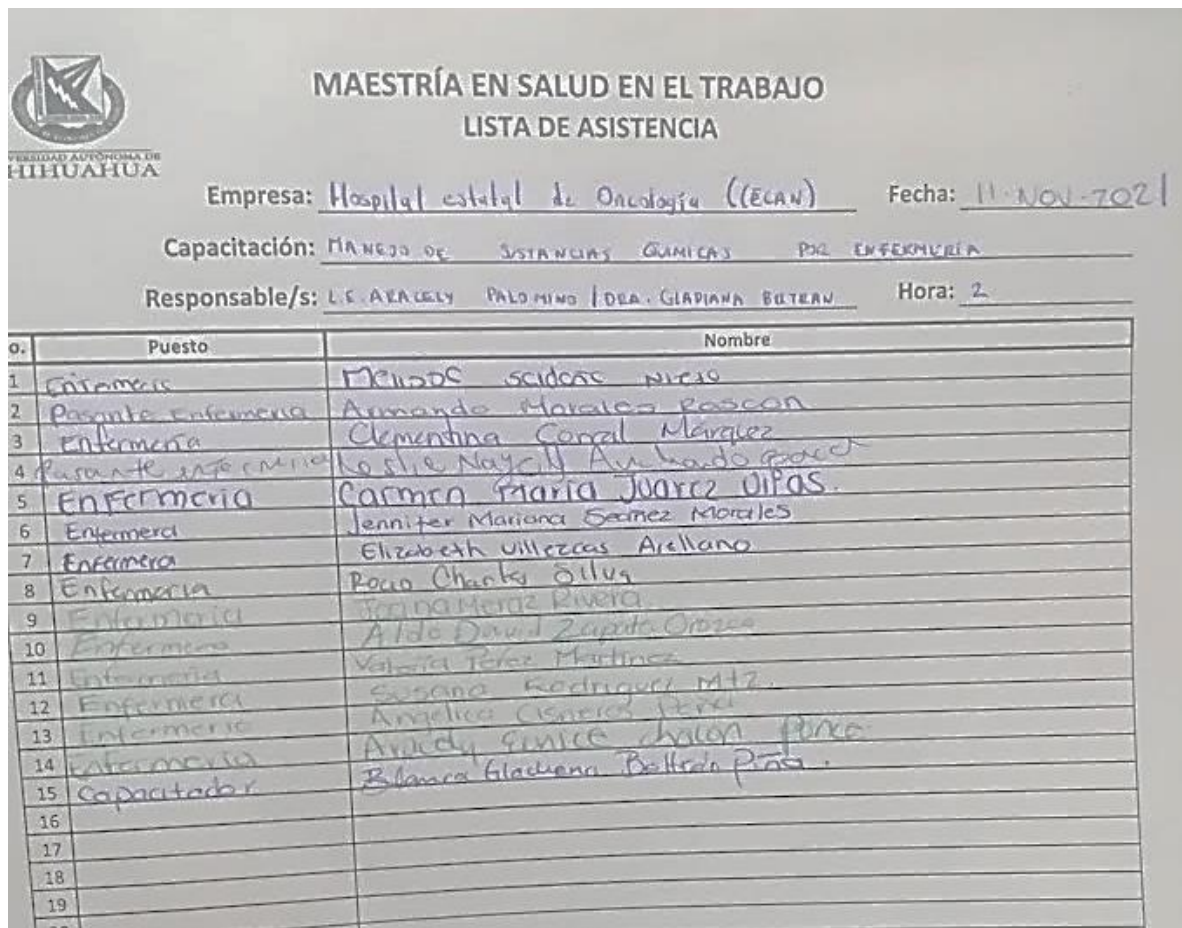 MAESTRÍA EN SALUD EN EL TRABAJO
LISTA DE ASISTENCIA
VERSIDAD AUTÓNOMA DE
HIHUAHUA
Empresa: Hospital estatal de Oncología (CECAN) Fecha: 11-NOV-2021
Capacitación: MANEJO DE SUSTANCIAS QUIMICAS POR ENFERMERÍA
Responsable/s: L.E. ARACELY PALOMINO / DRA. GLADIANA BELTRAN Hora: 2
o. Puesto Nombre
1 Enfermeria
2 Pasante Enfermeria Armando Morales Rascon
3 Enfermería Clementina Corral Márquez
4 Pasante enfermeria Leslie Nayely
5 Enfermeria Carmen Maria Juarez
6 Enfermera Jennifer Mariana Saenz Morales
7 Enfermera Elizabeth Villezcas Arellano
8 Enfermeria Rocio Silva
9 Enfermeria Joana Meraz Rivera
10 Enfermero Aldo David Zapata Orozco
11 Enfermeria Valeria Pérez Martinez
12 Enfermera Susana Rodriguez Mtz.
13 Enfermeria Angelica Cisneros
14 Enfermeria Eunice Ponce
15 Capacitador Blanca Beltrán Piña.
16
17
18
19